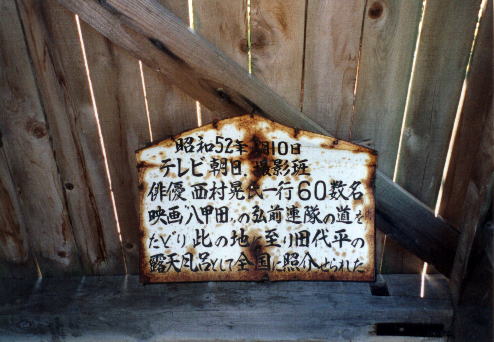 昭和52年 月10日
テレビ朝日.撮影班
俳優 西村晃氏一行60数名
映画八甲田..の弘前連隊の道を
たどり此の地に至り田代平の
露天風呂として全国に照介せられた